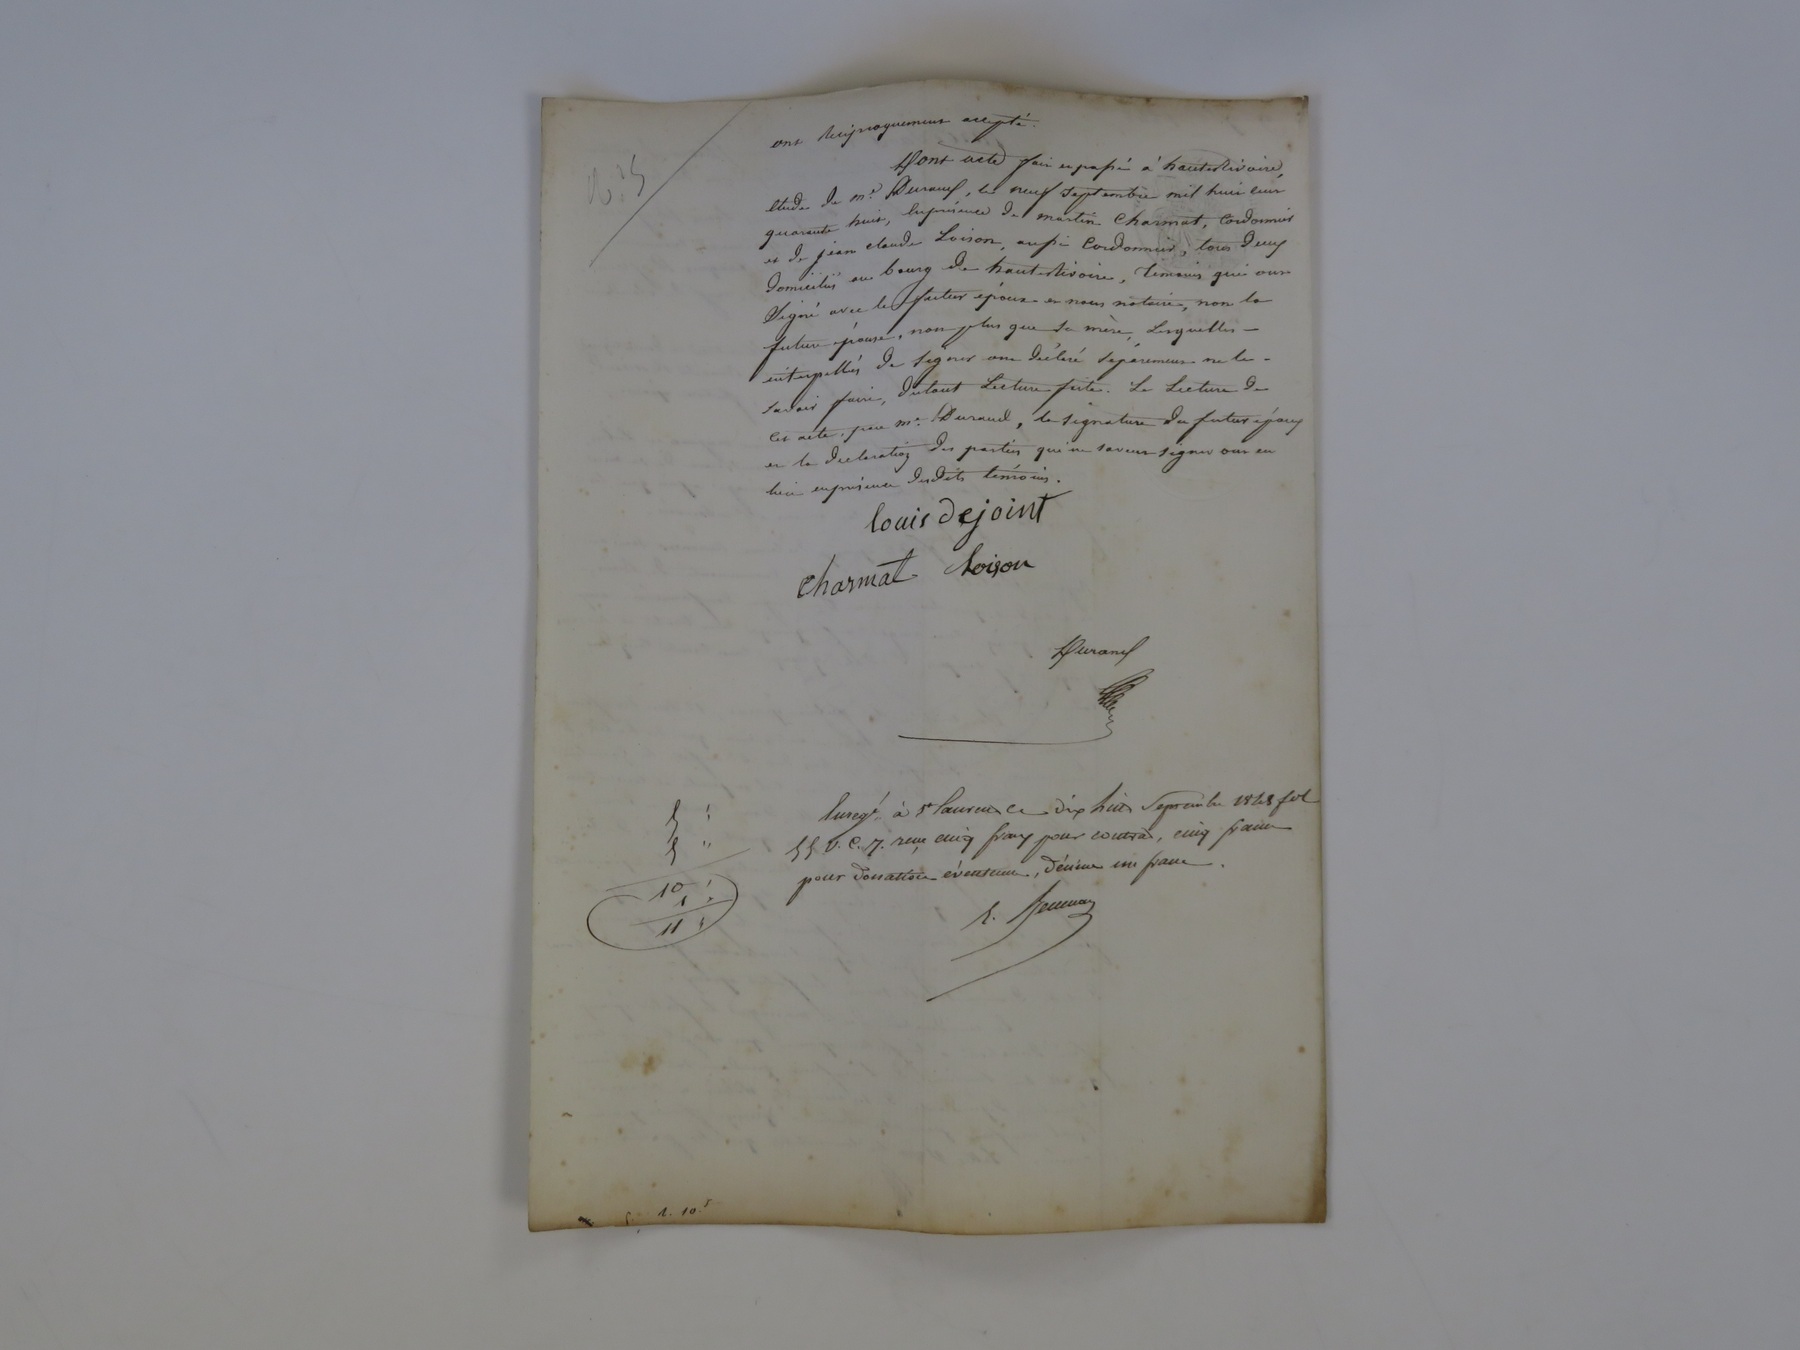 ont réciproquement accepté.
Dont acte fait et passé à hauterivoire,
étude de me. Durand, le neuf septembre mil huit cent
quarante huit, en présence de martin Charmat, Cordonnier
et de jean claude Loison, aussi Cordonnier, tous deux
domiciliés au bourg de hauterivoire, témoins qui ont
Signé avec le futur époux et nous notaire, non la
future épouse, non plus que sa mère, Lesquelles -
interpellés de signer ont déclaré séparément ne le -
savoir faire, dutout Lecture faite. La Lecture de
cet acte, par me. Durand, la signature du futur époux
et la déclaration des parties qui ne savent signer ont eu
lieu en présence desdits témoins.
louis dejoint
Charmat Loison
Durand
5 "
5 "
10 "
1 "
11 "
Enregé. à St Laurent le dix huit Septembre 1848 fol
55 v. C. 7. reçu cinq francs pour contrat, cinq francs
pour donation éventuelle, décime un franc.
1. 10